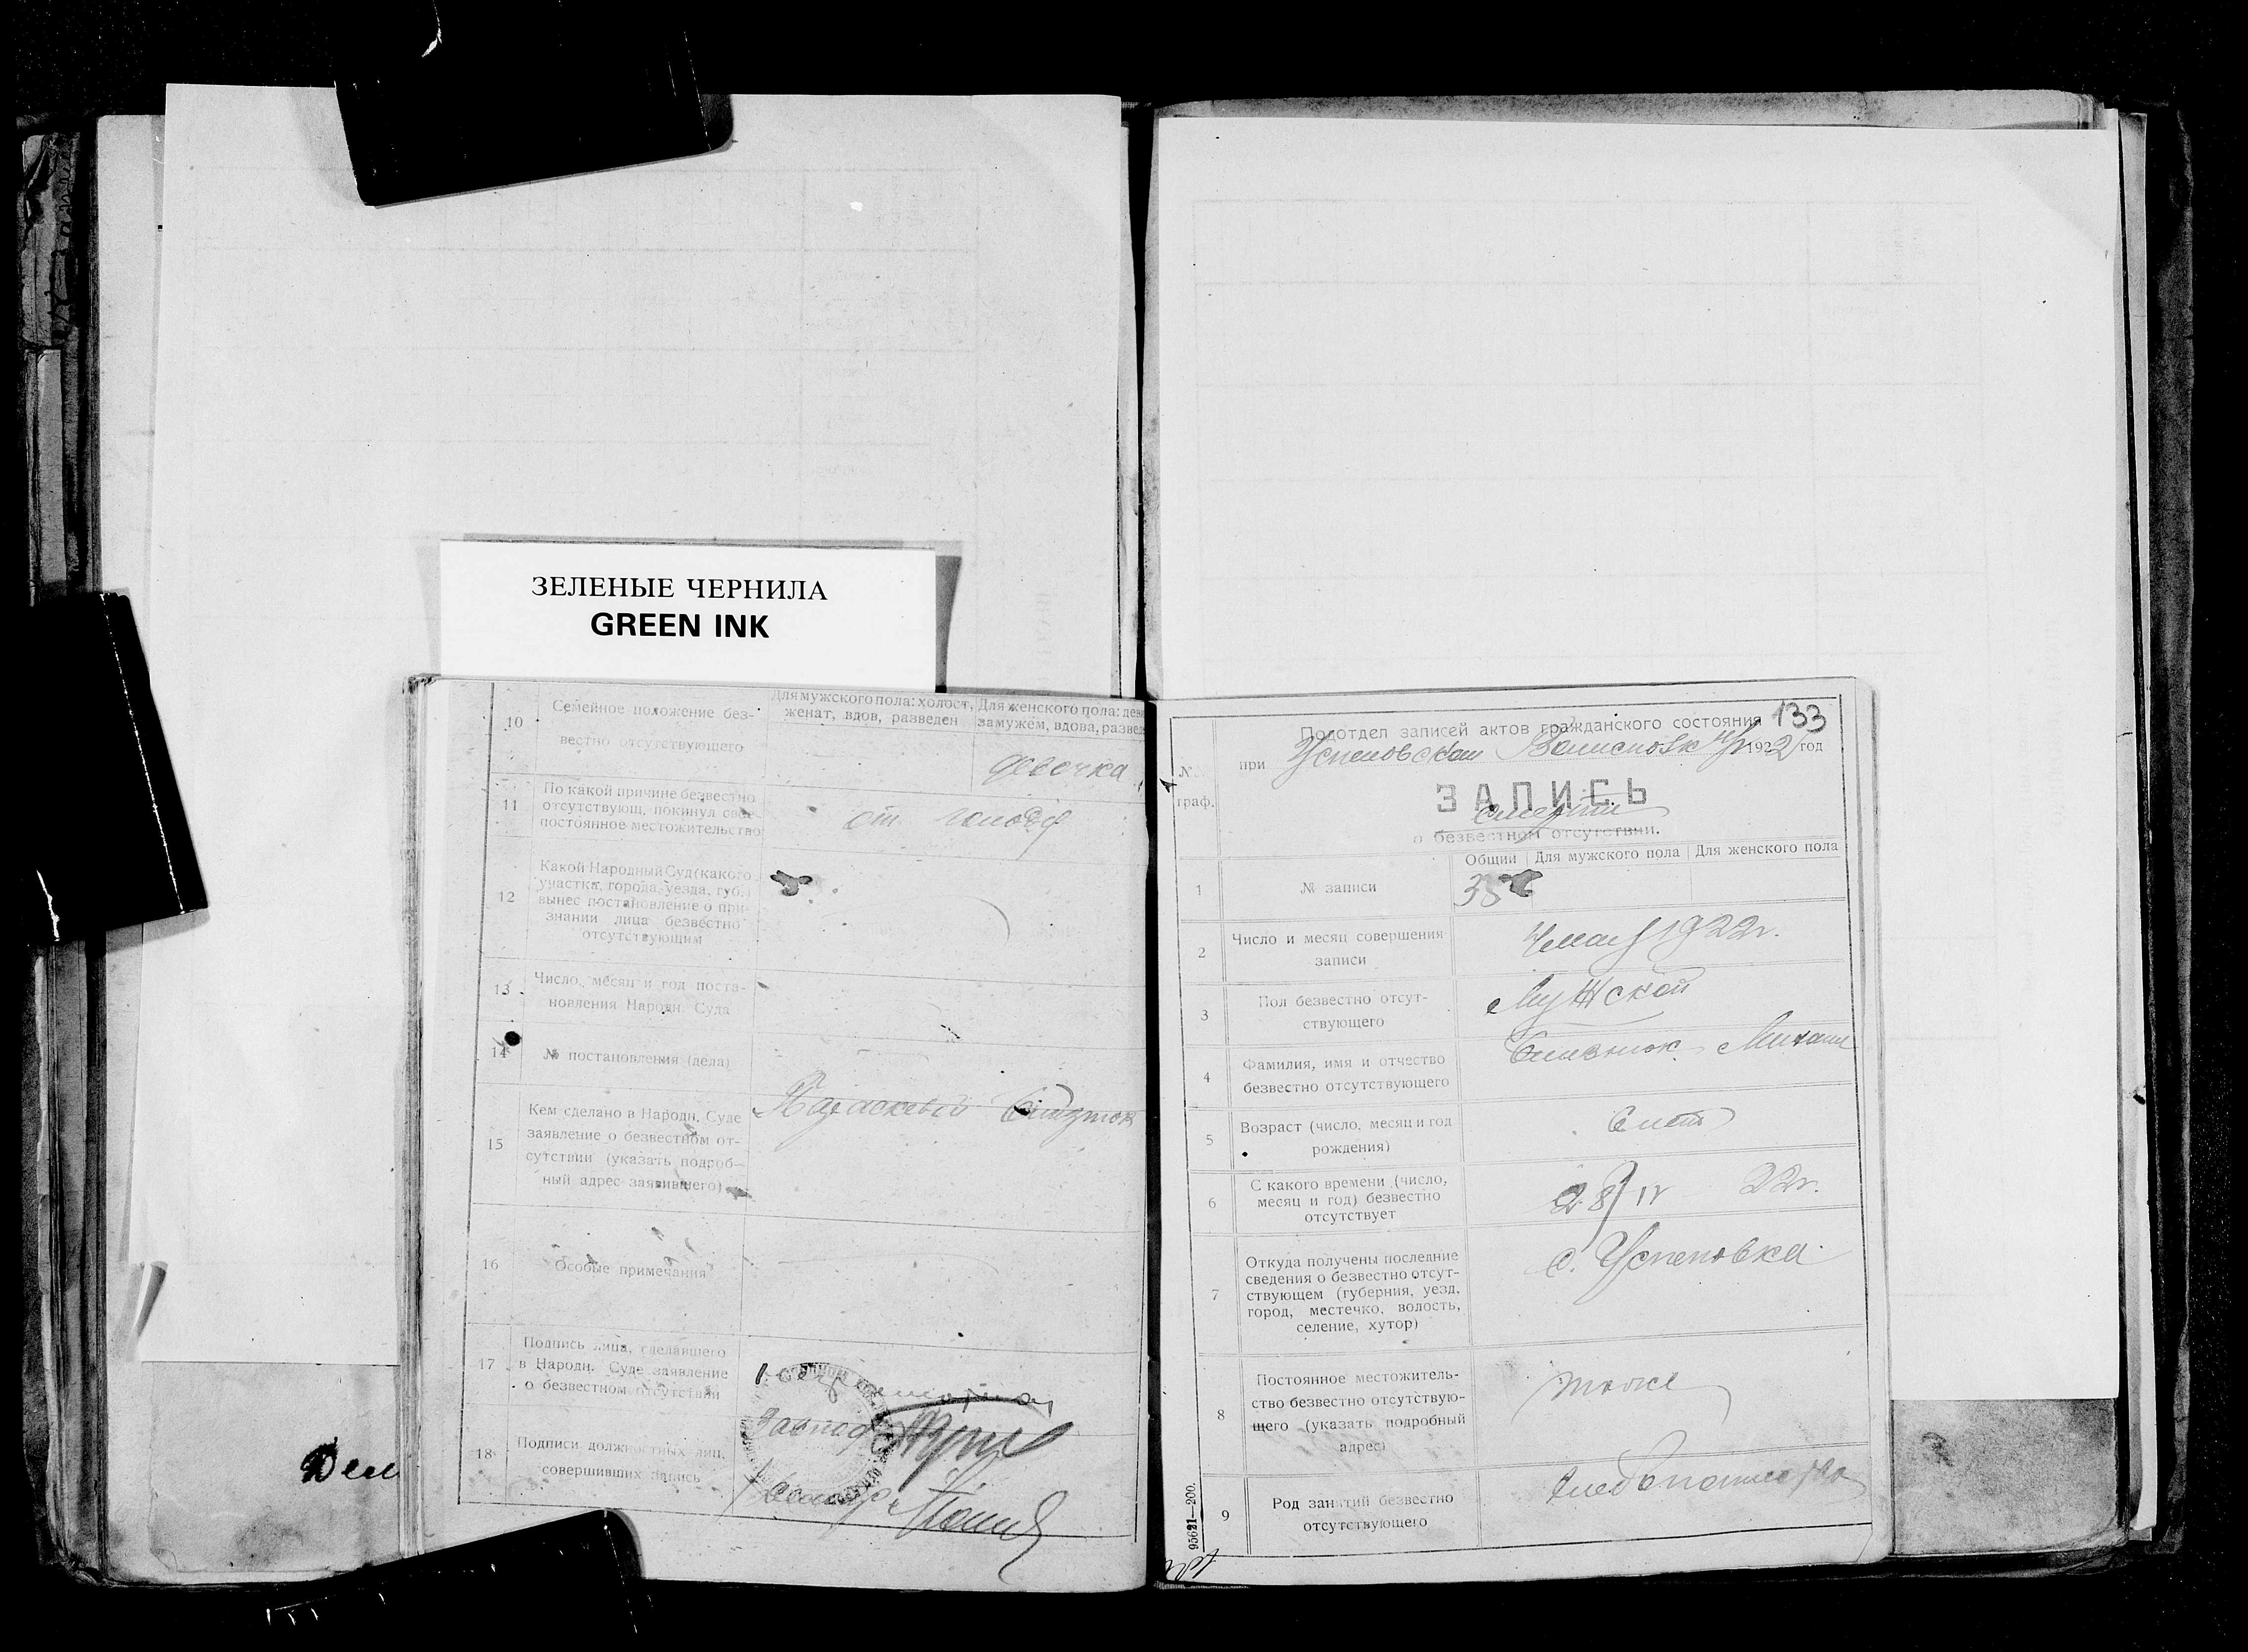 ЗЕЛЕНЫЕ ЧЕРНИЛА
GREEN INK
Для мужского пола: холост, женат, вдов, разведен
Для женского пола: замужем, вдова,
10 Семейное положение безвестно отсутствующего
девочка
11 По какой причине безвестно отсутствующ. покинул свое постоянное местожительство
от голода
12 Какой Народный Суд (какого участка, города, уезда, губ.) вынес постановление о признании лица безвестно отсутствующим
13 Число, месяц и год постановления Народн. Суда
14 № постановления (дела)
15 Кем сделано в Народн. Суде заявление о безвестном отсутствии (указать подробный адрес заявившего)
16 Особые примечания
17 Подпись лица, сделавшего в Народн. Суде заявление о безвестном отсутствии
18 Подписи должностных лиц, совершивших запись
133
Подотдел записей актов гражданского состояния
при Успеновском 1922 год
№№ граф.
ЗАПИСЬ
смерти
о безвестном отсутствии.
Общий Для мужского пола Для женского пола
1 № записи
2 Число и месяц совершения записи
4 мая 1922 г.
3 Пол безвестно отсутствующего
Мужской
4 Фамилия, имя и отчество безвестно отсутствующего
Михаил
5 Возраст (число, месяц и год рождения)
лет
6 С какого времени (число, месяц и год) безвестно отсутствует
28/IV 22 г.
7 Откуда получены последние сведения о безвестно отсутствующем (губерния, уезд, город, местечко, волость, селение, хутор)
с. Успеновка
8 Постоянное местожительство безвестно отсутствующего (указать подробный адрес)
тоже
9 Род занятий безвестно отсутствующего
95621—200.